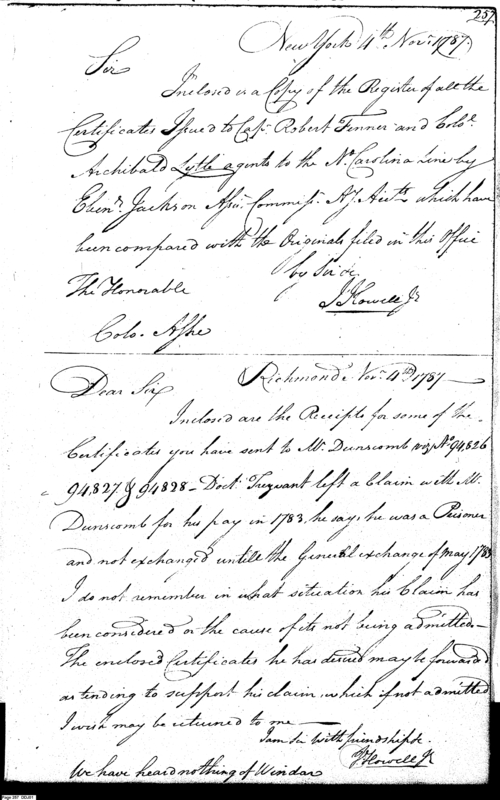 257.
New York 4th Novr. 1787.
Sir
Inclosed is a Copy of the Register of all the
Certificates Issued to Cap. Robert Fenner and Colo.
Archibald Lytle agents to the No. Carolina Line by
Ebinr. Jackson Assi. Commissr. A.J. which have
been compared with the Originals filed in this Office
by Sir &c.
The Honorable
J Howell Jr
Colo. Ashe
Richmond Novr. 4th 1787
Dear Sir
Inclosed are the Receipts for some of the
Certificates you have sent to Mr. Dunscomb viz No. 94,826
94,827 & 94828 - Doct. Trezvant left a Claim with Mr.
Dunscomb for his pay in 1783, he says he was a Prisoner
and not exchanged untill the General exchange of May 1783
I do not remember in what situation his Claim has
been considered or the cause of its not being admitted -
The enclosed Certificates he has desired may be forwarded
as tending to support his claim, which if not admitted
I wish may be returned to me
I am Sir with friendship &c.
J Howell Jr
We have heard nothing of Winder
Page 257 DDJ01